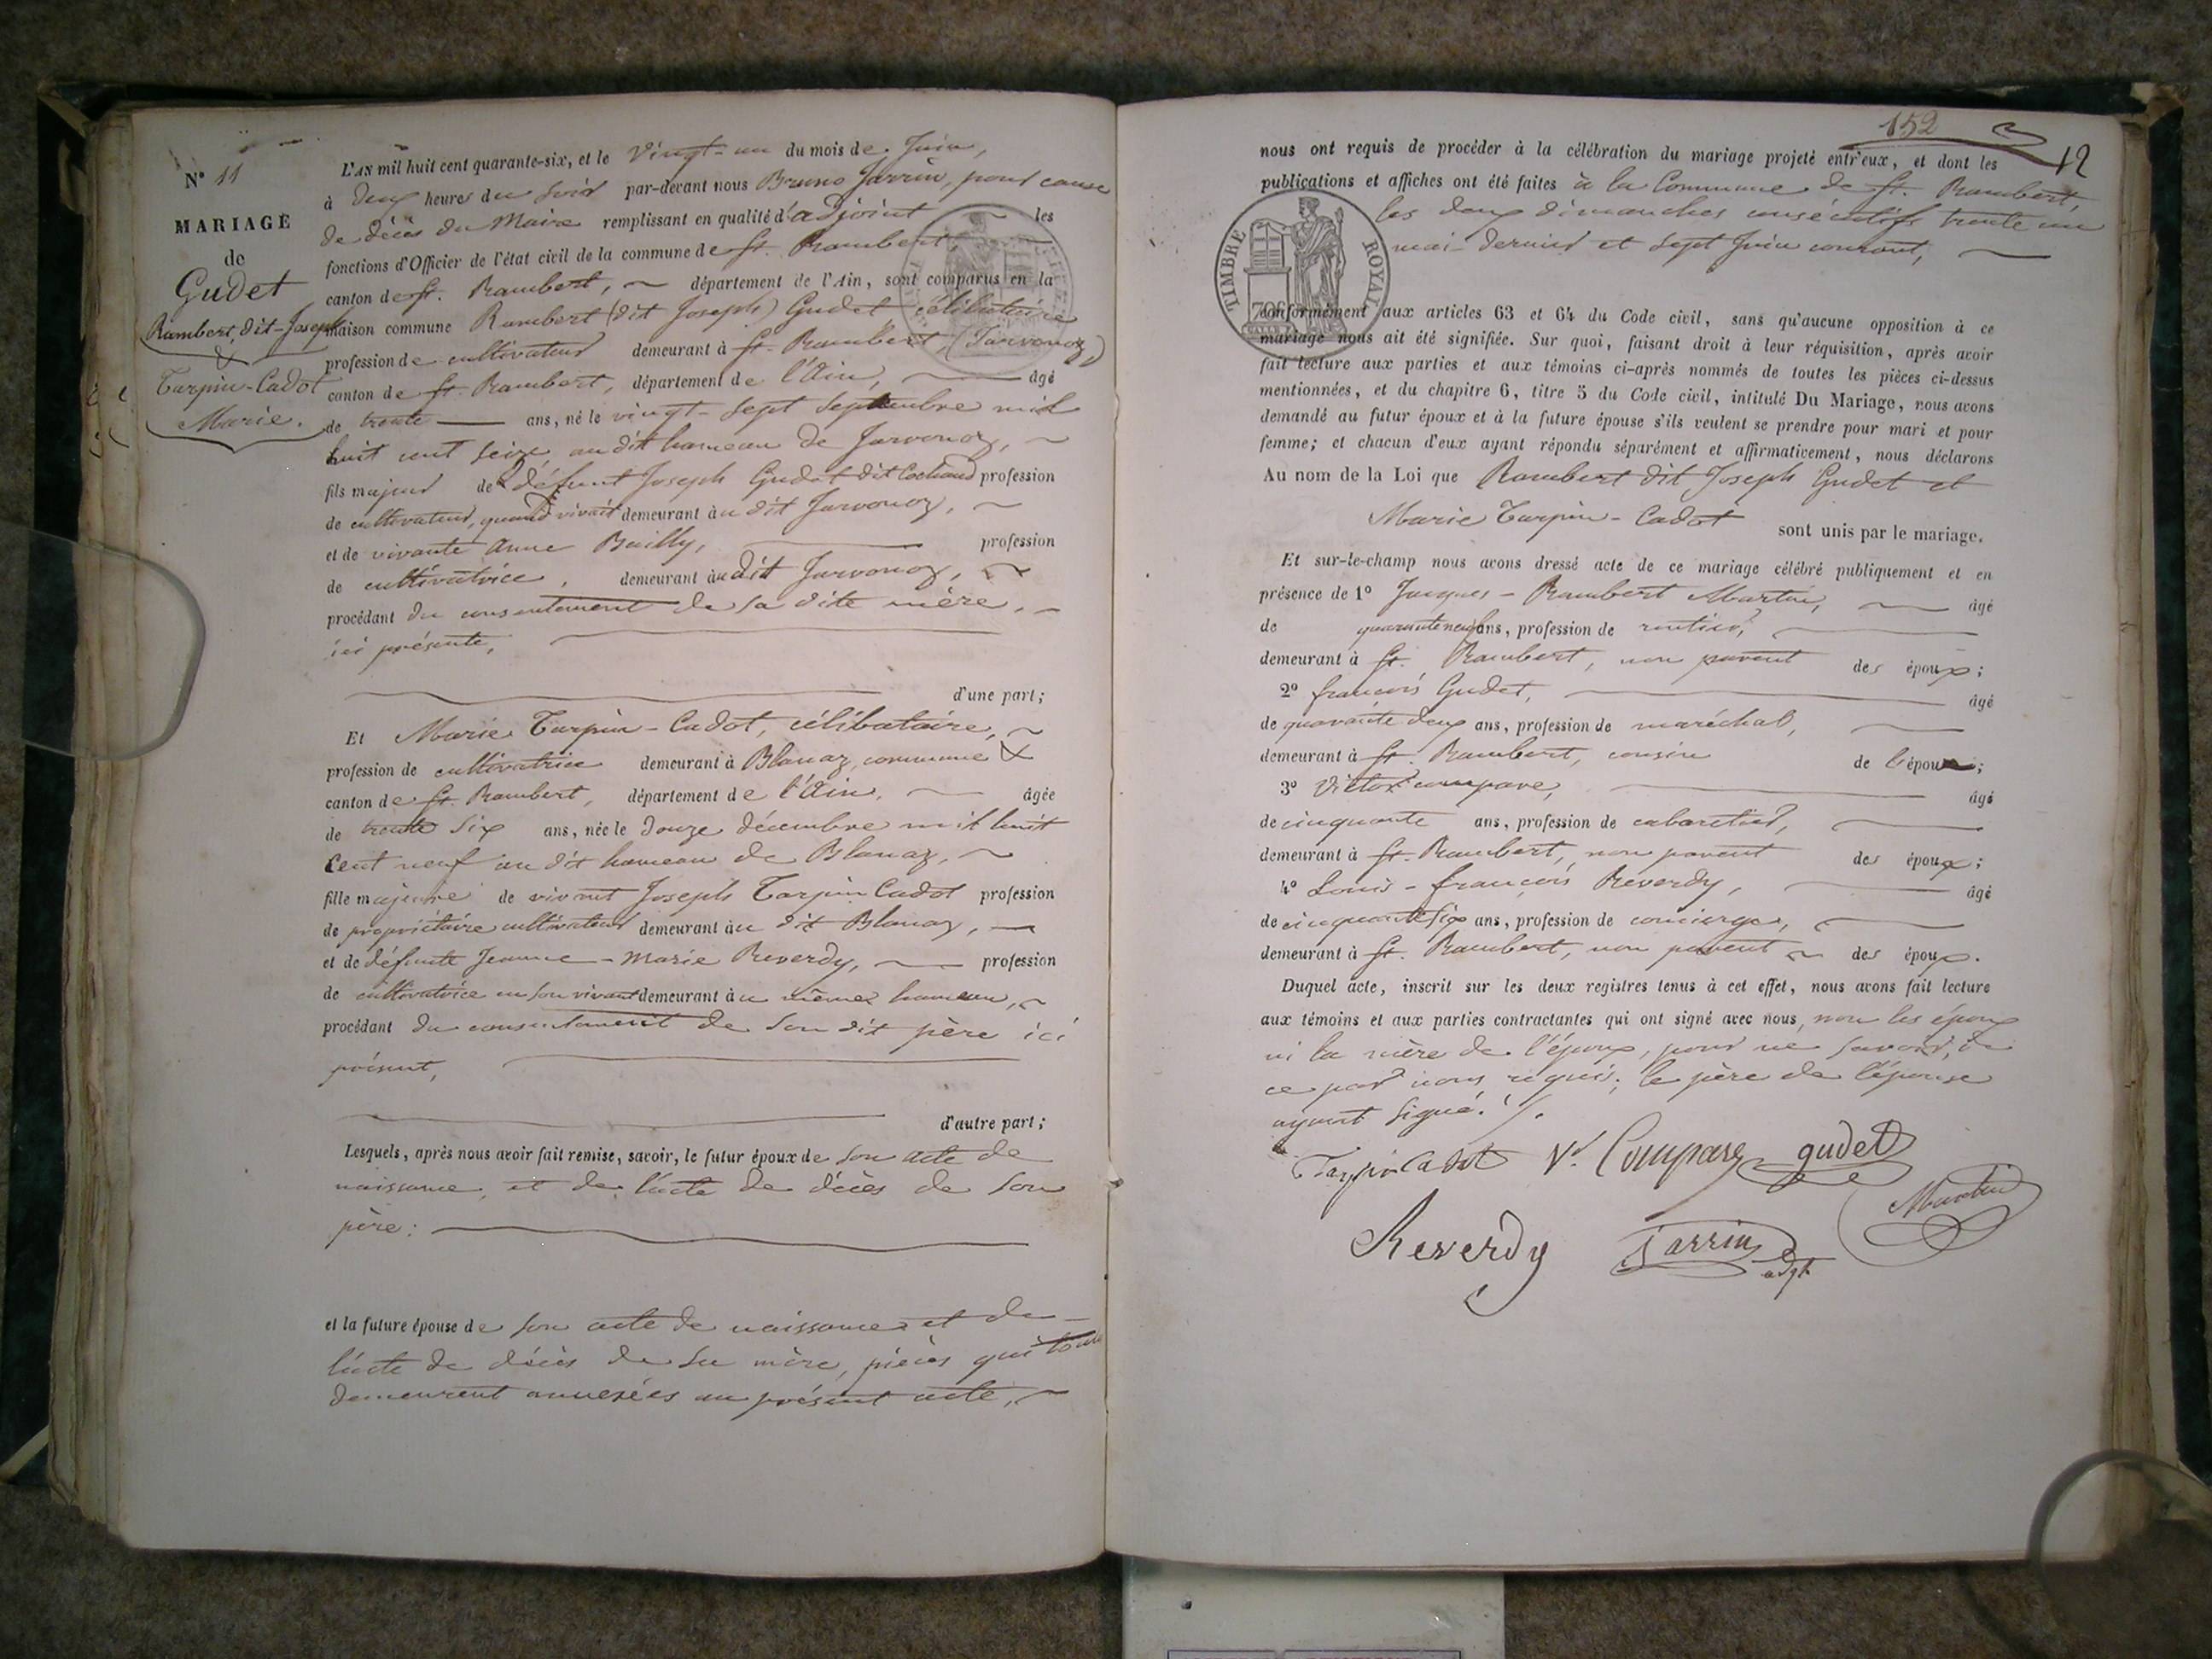 N° 11
MARIAGE
de
Gudet
Rambert, dit-Joseph
&
Tarpin-Cadot
Marie.
L'AN mil huit cent quarante-six, et le vingt-un du mois de Juin,
à deux heures du soir par-devant nous Bruno Jarrin, pour cause
de décès du Maire remplissant en qualité d'adjoint les
fonctions d'Officier de l'état civil de la commune de St. Rambert
canton de St. Rambert, département de l'Ain, sont comparus en la
maison commune Rambert (dit Joseph) Gudet célibataire
profession de cultivateur demeurant à St. Rambert, (Javornoz,)
canton de St. Rambert, département de l'Ain, âgé
de trente ans, né le vingt-sept septembre mil
huit cent seize au dit hameau de Javornoz,
fils majeur de défunt Joseph Gudet dit Cochand profession
de cultivateur, quand vivait demeurant au dit Javornoz,
et de vivante Anne Bailly, profession
de cultivatrice, demeurant au dit Javornoz,
procédant du consentement de sa dite mère,
ici présente,
d'une part;
Et Marie Tarpin-Cadot, célibataire,
profession de cultivatrice demeurant à Blanaz, commune &
canton de St. Rambert, département de l'Ain, âgée
de trente six ans, née le douze décembre mil huit
cent neuf au dit hameau de Blanaz,
fille majeure de vivant Joseph Tarpin Cadot profession
de propriétaire cultivateur demeurant au dit Blanaz,
et de défunte Jeanne-Marie Reverdy, profession
de cultivatrice en son vivant demeurant au même hameau,
procédant du consentement de son dit père ici
présent,
d'autre part;
Lesquels, après nous avoir fait remise, savoir, le futur époux de son acte de
naissance, et de l'acte de décès de son
père:
et la future épouse de son acte de naissance et de
l'acte de décès de sa mère, pièces qui tous
demeurent annexées au présent acte,
152
12
nous ont requis de procéder à la célébration du mariage projeté entr'eux, et dont les
publications et affiches ont été faites à la Commune de St. Rambert,
les deux dimanches consécutifs trente un
mai dernier et sept Juin courant,
TIMBRE ROYAL
conformément aux articles 63 et 64 du Code civil, sans qu'aucune opposition à ce
mariage nous ait été signifiée. Sur quoi, faisant droit à leur réquisition, après avoir
fait lecture aux parties et aux témoins ci-après nommés de toutes les pièces ci-dessus
mentionnées, et du chapitre 6, titre 5 du Code civil, intitulé Du Mariage, nous avons
demandé au futur époux et à la future épouse s'ils veulent se prendre pour mari et pour
femme; et chacun d'eux ayant répondu séparément et affirmativement, nous déclarons
Au nom de la Loi que Rambert dit Joseph Gudet et
Marie Tarpin-Cadot sont unis par le mariage.
Et sur-le-champ nous avons dressé acte de ce mariage célébré publiquement et en
présence de 1° Jacques-Rambert Martin, âgé
de quarante neuf ans, profession de rentier,
demeurant à St. Rambert, non parent des époux;
2° françois Gudet, âgé
de quarante deux ans, profession de maréchal,
demeurant à St. Rambert, cousin de l'époux;
3° Victor compare, âgé
de cinquante ans, profession de cabaretier,
demeurant à St. Rambert, non parent des époux;
4° Louis-françois Reverdy, âgé
de cinquante six ans, profession de concierge,
demeurant à St. Rambert, non parent des époux.
Duquel acte, inscrit sur les deux registres tenus à cet effet, nous avons fait lecture
aux témoins et aux parties contractantes qui ont signé avec nous, non les époux
ni la mère de l'époux, pour ne savoir, de
ce par nous requis; le père de l'épouse
ayant signé.
Tarpin Cadot Vr. Compare gudet
Martin
Reverdy Jarrin
adjt